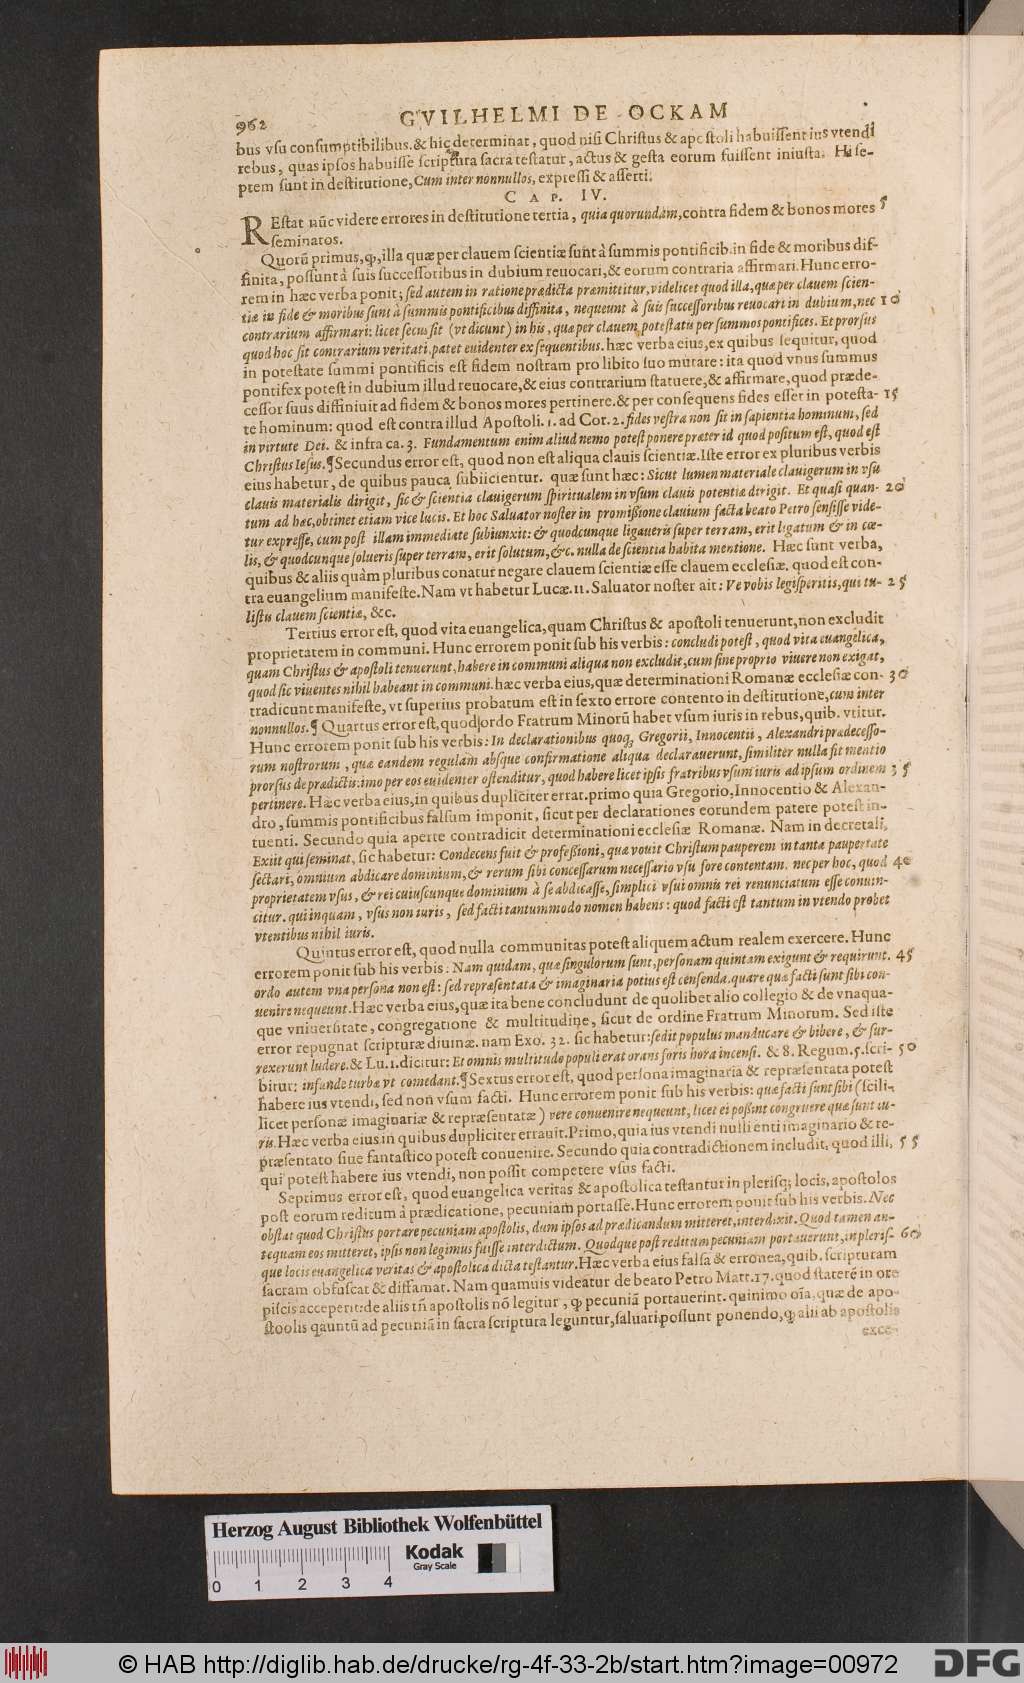 962
GVILHELMI DE OCKAM
bus vsu consumptibilibus. & hic determinat, quod nisi Christus & apostoli habuissent ius vtendi
rebus, quas ipsos habuisse scriptura sacra testatur, actus & gesta eorum fuissent iniusta. Hi se-
ptem sunt in destitutione, Cum inter nonnullos, expressi & asserti.
CAP. IV.
REstat nũc videre errores in destitutione tertia, quia quorundam, contra fidem & bonos mores 5
seminatos.
Quorũ primus, ꝙ, illa quæ per clauem scientiæ sunt à summis pontificib. in fide & moribus dif-
finita, possunt à suis successoribus in dubium reuocari, & eorum contraria affirmari. Hunc erro-
rem in hæc verba ponit; sed autem in ratione prædicta præmittitur, videlicet quod illa, quæ per clauem scien-
tiæ in fide & moribus sunt à summis pontificibus diffinita, nequeunt à suis successoribus reuocari in dubium, nec 10
contrarium affirmari: licet secus sit (vt dicunt) in his, quæ per clauem potestatis per summos pontifices. Et prorsus
quod hoc sit contrarium veritati, patet euidenter ex sequentibus. hæc verba eius, ex quibus sequitur, quod
in potestate summi pontificis est fidem nostram pro libito suo mutare: ita quod vnus summus
pontifex potest in dubium illud reuocare, & eius contrarium statuere, & affirmare, quod præde-
cessor suus diffiniuit ad fidem & bonos mores pertinere. & per consequens fides esset in potesta- 15
te hominum: quod est contra illud Apostoli. 1. ad Cor. 2. fides vestra non sit in sapientia hominum, sed
in virtute Dei. & infra ca. 3. Fundamentum enim aliud nemo potest ponere præter id quod positum est, quod est
Christus Iesus. ¶ Secundus error est, quod non est aliqua clauis scientiæ. Iste error ex pluribus verbis
eius habetur, de quibus pauca subiicientur. quæ sunt hæc: Sicut lumen materiale clauigerum in vsu
clauis materialis dirigit, sic & scientia clauigerum spiritualem in vsum clauis potentiæ dirigit. Et quasi quan- 20
tum ad hæc, obtinet etiam vice lucis. Et hoc Saluator noster in promissione clauium facta beato Petro sensisse vide-
tur expresse, cum post illam immediate subiunxit: & quodcunque ligaueris super terram, erit ligatum & in cœ-
lis, & quodcunque solueris super terram, erit solutum, &c. nulla de scientia habita mentione. Hæc sunt verba,
quibus & aliis quàm pluribus conatur negare clauem scientiæ esse clauem ecclesiæ. quod est con-
tra euangelium manifeste. Nam vt habetur Lucæ. 11. Saluator noster ait: Ve vobis legisperitis, qui tu- 25
listis clauem scientiæ, &c.
Tertius error est, quod vita euangelica, quam Christus & apostoli tenuerunt, non excludit
proprietatem in communi. Hunc errorem ponit sub his verbis: concludi potest, quod vita euangelica,
quam Christus & apostoli tenuerunt, habere in communi aliqua non excludit, cum sine proprio viuere non exigat,
quod sic viuentes nihil habeant in communi. hæc verba eius, quæ determinationi Romanæ ecclesiæ con- 30
tradicunt manifeste, vt superius probatum est in sexto errore contento in destitutione, cum inter
nonnullos. ¶ Quartus error est, quod ordo Fratrum Minorũ habet vsum iuris in rebus, quib. vtitur.
Hunc errorem ponit sub his verbis: In declarationibus quoq; Gregorii, Innocentii, Alexandri prædecesso-
rum nostrorum, quæ eandem regulam absque confirmatione aliqua declarauerunt, similiter nulla fit mentio
prorsus de prædictis: imo per eos euidenter ostenditur, quod habere licet ipsis fratribus vsum iuris ad ipsum ordinem 35
pertinere. Hæc verba eius, in quibus dupliciter errat. primo quia Gregorio, Innocentio & Alexan-
dro, summis pontificibus falsum imponit, sicut per declarationes eorundem patere potest in-
tuenti. Secundo quia aperte contradicit determinationi ecclesiæ Romanæ. Nam in decretali,
Exiit qui seminat, sic habetur: Condecens fuit & professioni, quæ vouit Christum pauperem in tanta paupertate
sectari, omnium abdicare dominium, & rerum sibi concessarum necessario vsu fore contentam. nec per hoc, quod 40
proprietatem vsus, & rei cuiuscunque dominium à se abdicasse, simplici vsui omnis rei renunciatum esse conuin-
citur. qui inquam, vsus non iuris, sed facti tantummodo nomen habens: quod facti est tantum in vtendo præbet
vtentibus nihil iuris.
Quintus error est, quod nulla communitas potest aliquem actum realem exercere. Hunc
errorem ponit sub his verbis: Nam quidam, quæ singulorum sunt, personam quintam exigunt & requirunt. 45
ordo autem vna persona non est: sed repræsentata & imaginaria potius est censenda. quare quæ facti sunt sibi con-
uenire nequeunt. Hæc verba eius, quæ ita bene concludunt de quolibet alio collegio & de vnaqua-
que vniuersitate, congregatione & multitudine, sicut de ordine Fratrum Minorum. Sed iste
error repugnat scripturæ diuinæ. nam Exo. 32. sic habetur: sedit populus manducare & bibere, & sur-
rexerunt ludere. & Lu. 1. dicitur: Et omnis multitudo populi erat orans foris hora incensi. & 8. Regum. 5. scri- 50
bitur: infunde turbæ vt comedant. ¶ Sextus error est, quod persona imaginaria & repræsentata potest
habere ius vtendi, sed non vsum facti. Hunc errorem ponit sub his verbis: quæ facti sunt sibi (scili-
licet personæ imaginariæ & repræsentatæ) vere conuenire nequeunt, licet ei possint congruere quæ sunt iu-
ris. Hæc verba eius in quibus dupliciter errauit. Primo, quia ius vtendi nulli enti imaginario & re-
præsentato siue fantastico potest conuenire. Secundo quia contradictionem includit, quod illi, 55
qui potest habere ius vtendi, non possit competere vsus facti.
Septimus error est, quod euangelica veritas & apostolica testantur in plerisq; locis, apostolos
post eorum reditum à prædicatione, pecuniam portasse. Hunc errorem ponit sub his verbis. Nec
obstat quod Christus portare pecuniam apostolis, dum ipsos ad prædicandum mitteret, interdixit. Quod tamen an-
tequam eos mitteret, ipsis non legimus fuisse interdictum. Quodque post reditum pecuniam portauerunt, in pleris- 60
que locis euangelica veritas & apostolica dicta testantur. Hæc verba eius falsa & erronea, quib. scripturam
sacram obfuscat & diffamat. Nam quamuis videatur de beato Petro Matt. 17. quod staterẽ in ore
piscis acceperit: de aliis tñ apostolis nõ legitur, ꝙ pecuniã portauerint. quinimo oĩa, quæ de apo-
stoolis qauntũ ad pecuniã in sacra scriptura leguntur, saluari possunt ponendo, ꝙ alii ab apostolis
exce-
Herzog August Bibliothek Wolfenbüttel
Kodak
Gray Scale
0 1 2 3 4
© HAB http://diglib.hab.de/drucke/rg-4f-33-2b/start.htm?image=00972
DFG